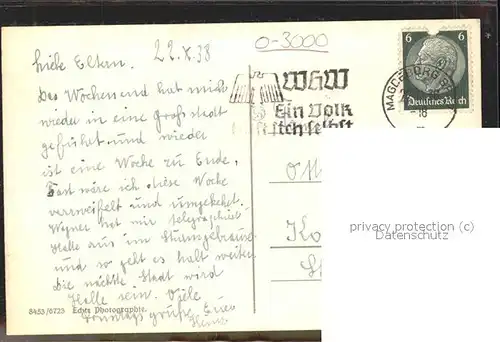 22.X.38
0-3000
Liebe Eltern.
Das Wochenend hat mich
wieder in eine Großstadt
geführt und wieder
ist eine Woche zu Ende.
Fast wäre ich diese Woche
verzweifelt und umgekehrt.
hat mir telegraphiert
Halle aus im
und so geht es halt weiter.
Die nächste Stadt wird
Halle sein. Viele
Sonntagsgrüße Euer
Heinz
WHW
Ein Volk
hilft sich selbst
MAGDEBURG
6 6
Deutsches Reich
privacy protection (c)
Datenschutz
8453/6723 Echte Photographie.